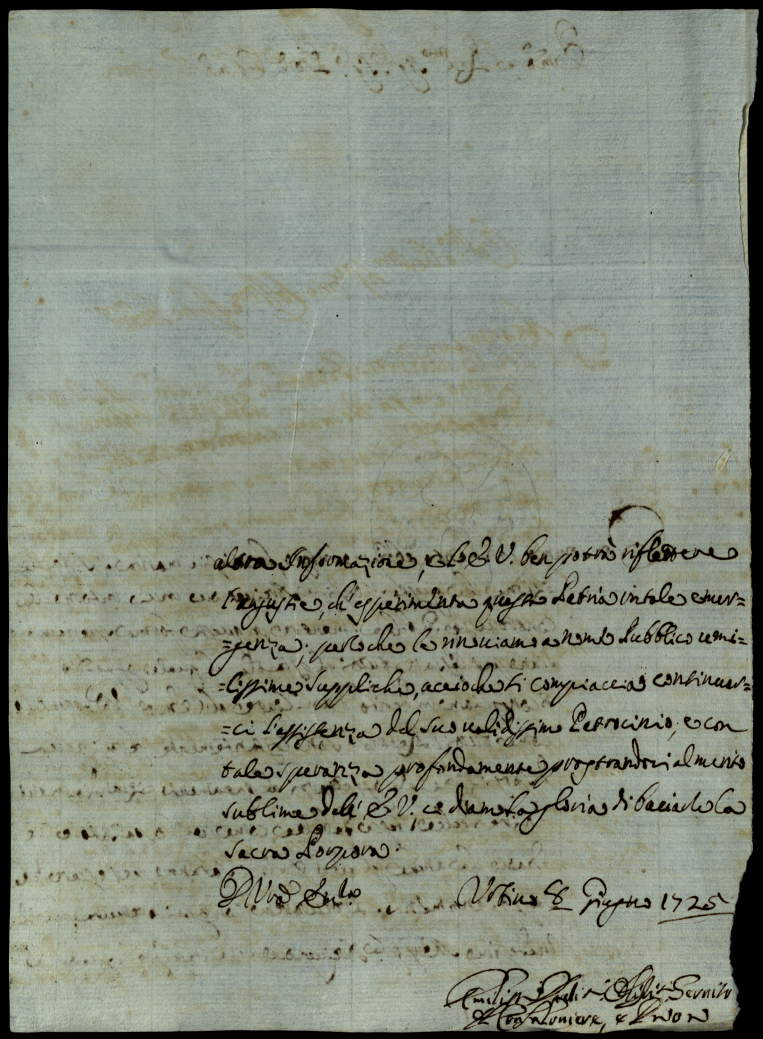 altra Informazione, e l'E. V. ben potrà riflettere
l'angustie, ch'esperimenta questa Patria in tale emer=
=genza; perloche le rinoviamo a nome Pubblico umi=
=lissime suppliche, acciochè si compiaccia continuar=
=ci l'assistenza del suo validissimo Patrocinio, e con
tale speranza profondamente prostrandoci al merito
sublime dell' E. V. ce diamo la gloria di baciarle la
sacra Porpora.
Urbino 8 Giugno 1725
Servito
Il Confaloniere, e Priori